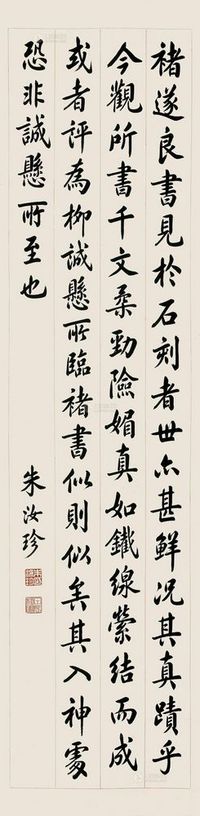 褚遂良書見於石刻者世亦甚鮮况其真蹟乎
今觀所書千文柔勁險媚真如鐵線縈結而成
或者評為柳誠懸所臨褚書似則似矣其入神處
恐非誠懸所至也
朱汝珍